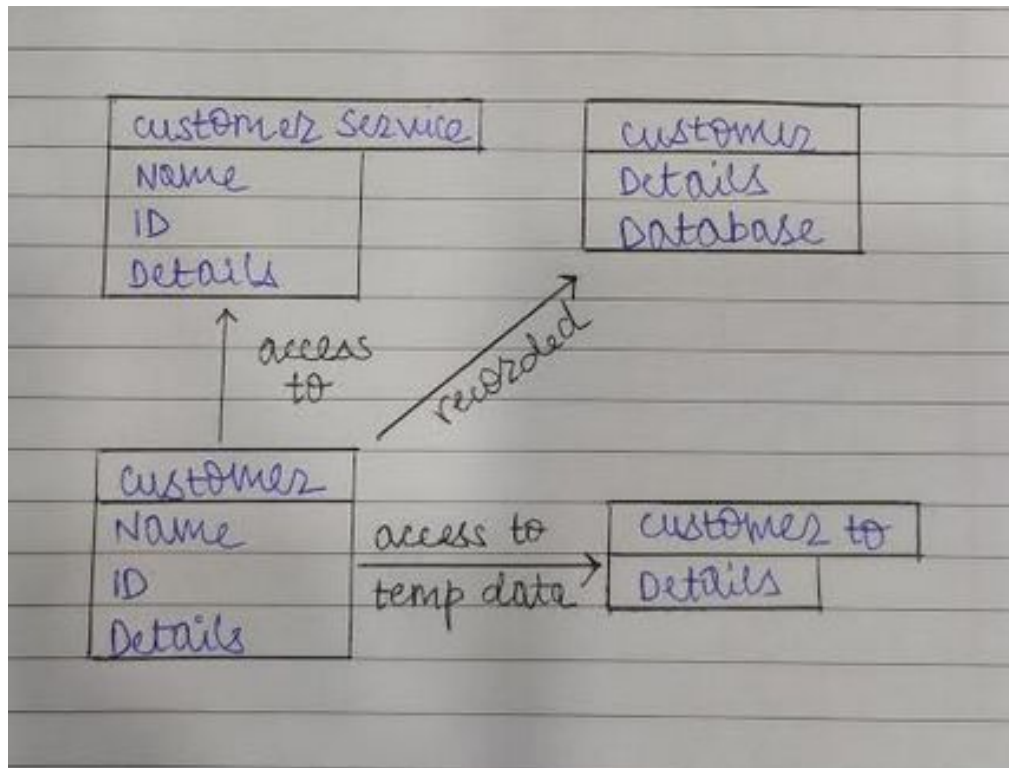 customer Service
Name
ID
Details
customer
Details
Database
access
to
recorded
customer
Name
ID
Details
access to
temp data
customer to
Details